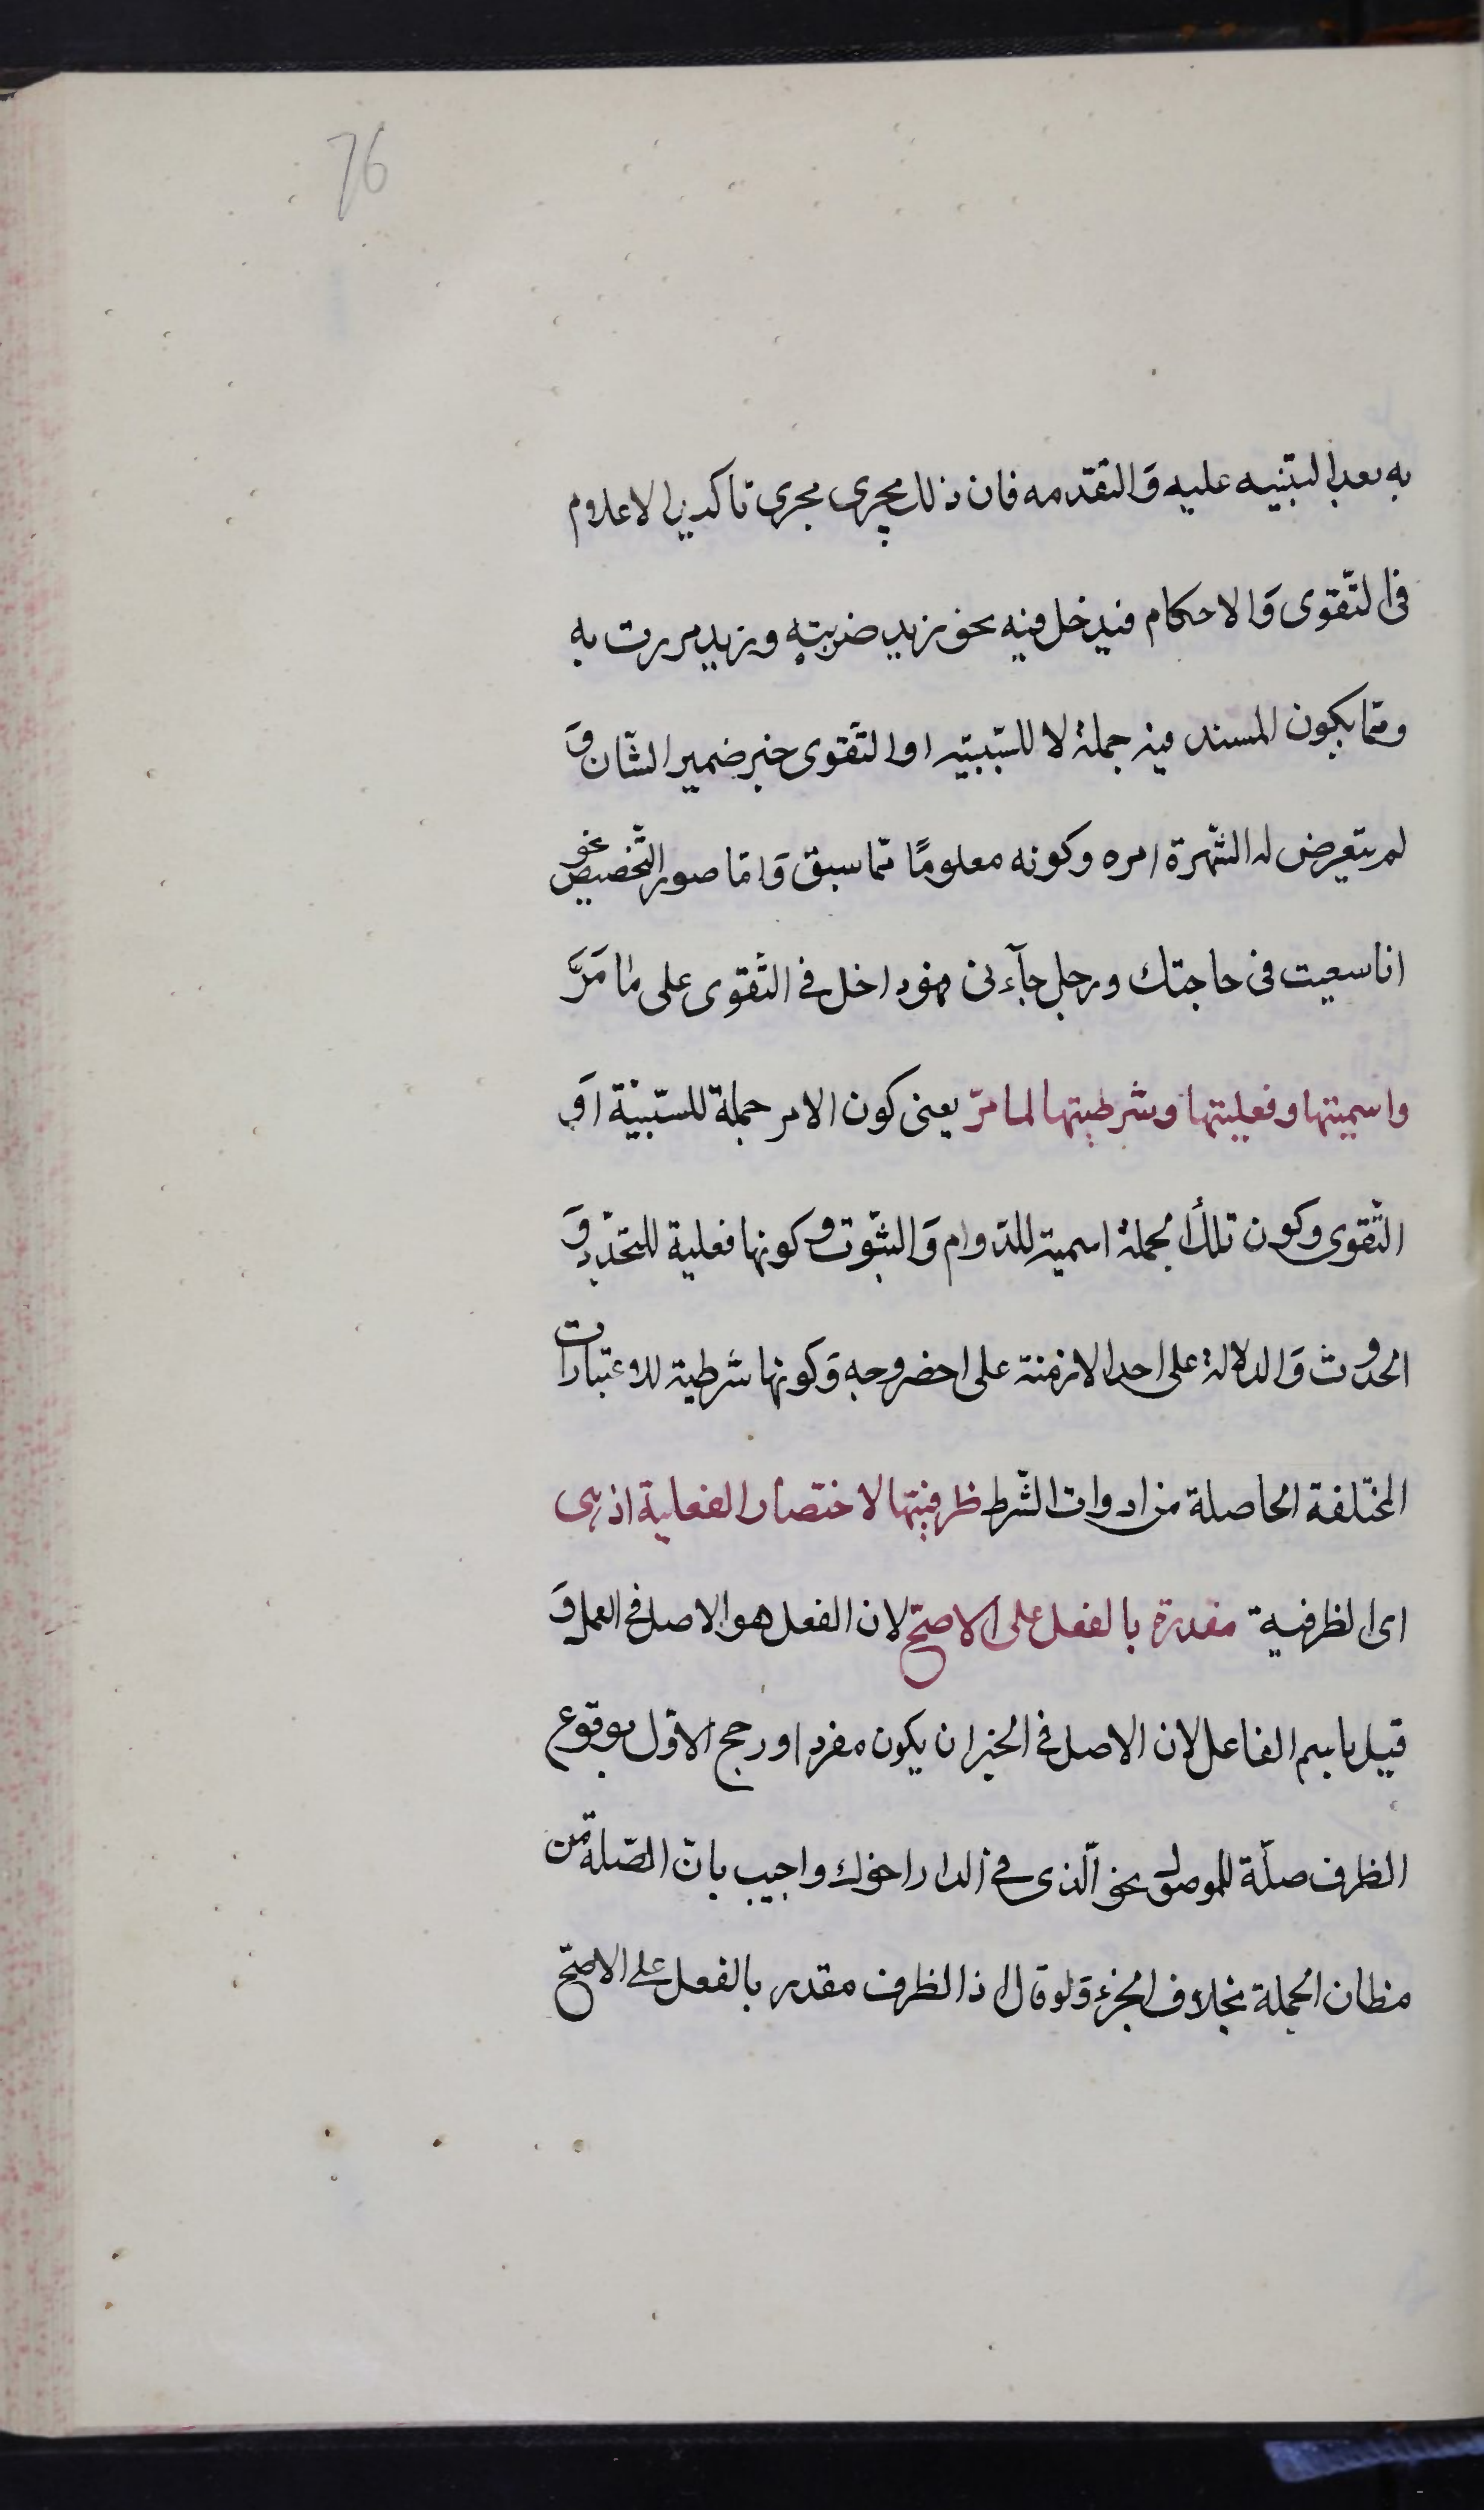 76
به بعد التنبيه عليه وَالتقدمه فان ذلك يجرى مجرى تاكيد الاعلام
فى التّقوى وَالاحكام فيدخل فيه نحو زيد ضربته وزيد مررت به
وممّا يكون المسند فيه جملة لا للسّببيّه او التّقوى خبر ضمير الشّان وَ
لم يتعرض له الشّهرة امره وكونه معلومًا ممّا سبق وَامّا صور التّخصيص نحو
انا سعيت فى حاجتك ورجل جآءنى فهو داخل فى التّقوى على ما مَرَّ
واسميتها وفعليتها وشرطيتها لما مرّ يعنى كون الامر جملة للسّببيّة اَو
التّقوى وكون تلك الجملة اسمية للدّوام وَالثّبوت وكونها فعلية للتّجدّد وَ
الحدوث وَالدلالة على احد الازمنة على احضر وجه وَكونها شرطية للاعتبارات
المختلفة الحاصلة من ادوات الشّرط ظرفيتها لاختصار الفعلية اذ هى
اى الظرفية مقدرة بالفعل على الاصحّ لان الفعل هو الاصل فى العمل وَ
قيل باسم الفاعل لان الاصل فى الخبر ان يكون مفردا ورجح الاوّل بوقوع
الظرف صلة للموصول نحو الّذى فى الدار اخوك واجيب بانّ الصّلة من
مظان الجملة بخلاف الخبر وَلو قال اذ الظرف مقدر بالفعل على الاصحّ